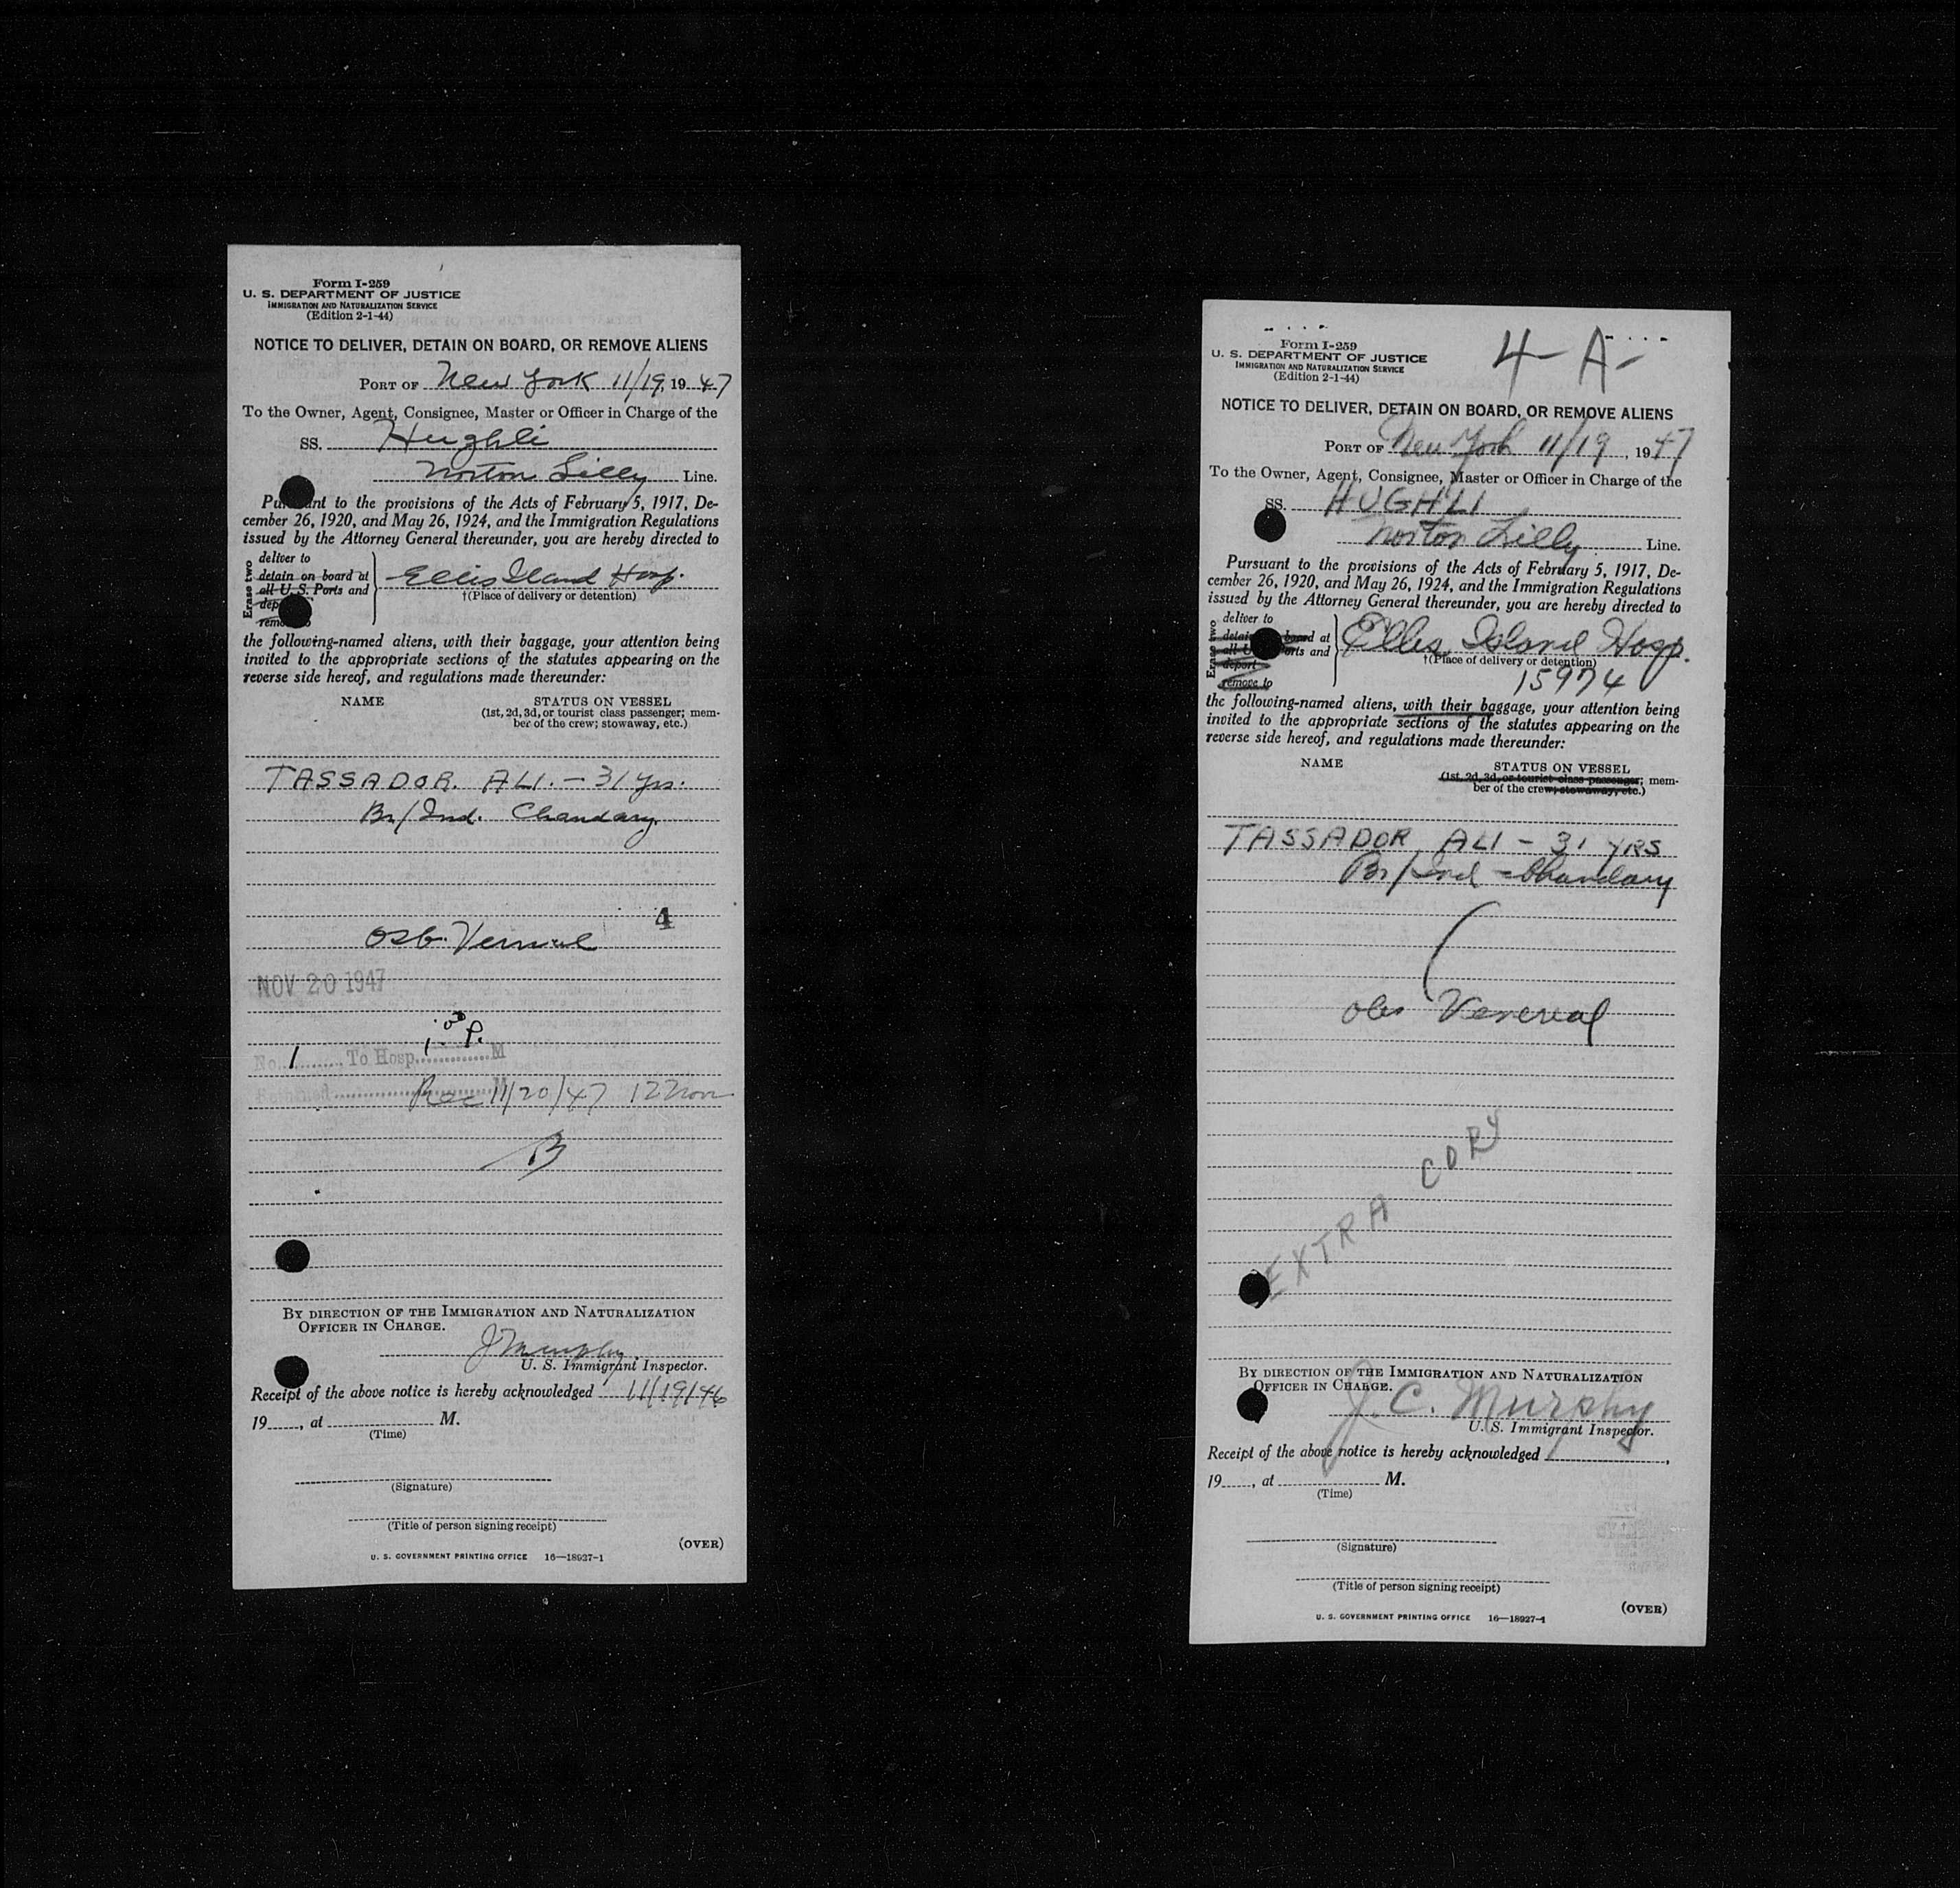 Form I-259
U. S. DEPARTMENT OF JUSTICE
IMMIGRATION AND NATURALIZATION SERVICE
(Edition 2-1-44)
NOTICE TO DELIVER, DETAIN ON BOARD, OR REMOVE ALIENS
PORT OF New York 11/19, 1947
To the Owner, Agent, Consignee, Master or Officer in Charge of the
SS. Hughli
Norton Lilly Line.
Pursuant to the provisions of the Acts of February 5, 1917, De-
cember 26, 1920, and May 26, 1924, and the Immigration Regulations
issued by the Attorney General thereunder, you are hereby directed to
Erase two
deliver to
detain on board at
all U. S. Ports and
dep
remo to
Ellis Iland Hosp.
†(Place of delivery or detention)
the following-named aliens, with their baggage, your attention being
invited to the appropriate sections of the statutes appearing on the
reverse side hereof, and regulations made thereunder:
NAME STATUS ON VESSEL
(1st, 2d, 3d, or tourist class passenger; mem-
ber of the crew; stowaway, etc.)
TASSADOR. ALI. - 31 yrs.
Br/Ind. Chandary.
4
NOV 20 1947
P.
No. 1 To Hosp. M
Rec 11/20/47 12
B
BY DIRECTION OF THE IMMIGRATION AND NATURALIZATION
OFFICER IN CHARGE.
J Murphy
U. S. Immigrant Inspector.
Receipt of the above notice is hereby acknowledged 11/19/46
19 , at M.
(Time)
(Signature)
(Title of person signing receipt)
(OVER)
U. S. GOVERNMENT PRINTING OFFICE 16—18927-1
4-A-
Form I-259
U. S. DEPARTMENT OF JUSTICE
IMMIGRATION AND NATURALIZATION SERVICE
(Edition 2-1-44)
NOTICE TO DELIVER, DETAIN ON BOARD, OR REMOVE ALIENS
PORT OF New York 11/19, 1947
To the Owner, Agent, Consignee, Master or Officer in Charge of the
SS. HUGHLI
Norton Lilly Line.
Pursuant to the provisions of the Acts of February 5, 1917, De-
cember 26, 1920, and May 26, 1924, and the Immigration Regulations
issued by the Attorney General thereunder, you are hereby directed to
Erase two
deliver to
detain board at
all U ports and
deport
remove to
Ellis Island Hosp.
†(Place of delivery or detention)
15974
the following-named aliens, with their baggage, your attention being
invited to the appropriate sections of the statutes appearing on the
reverse side hereof, and regulations made thereunder:
NAME STATUS ON VESSEL
(1st, 2d, 3d, or tourist class passenger; mem-
ber of the crew; stowaway, etc.)
TASSADOR ALI - 31 YRS
Br/Ind - Chandary
Obs Venereal
EXTRA COPY
BY DIRECTION OF THE IMMIGRATION AND NATURALIZATION
OFFICER IN CHARGE.
J. C. Murphy
U. S. Immigrant Inspector.
Receipt of the above notice is hereby acknowledged
19 , at M.
(Time)
(Signature)
(Title of person signing receipt)
(OVER)
U. S. GOVERNMENT PRINTING OFFICE 16—18927-1